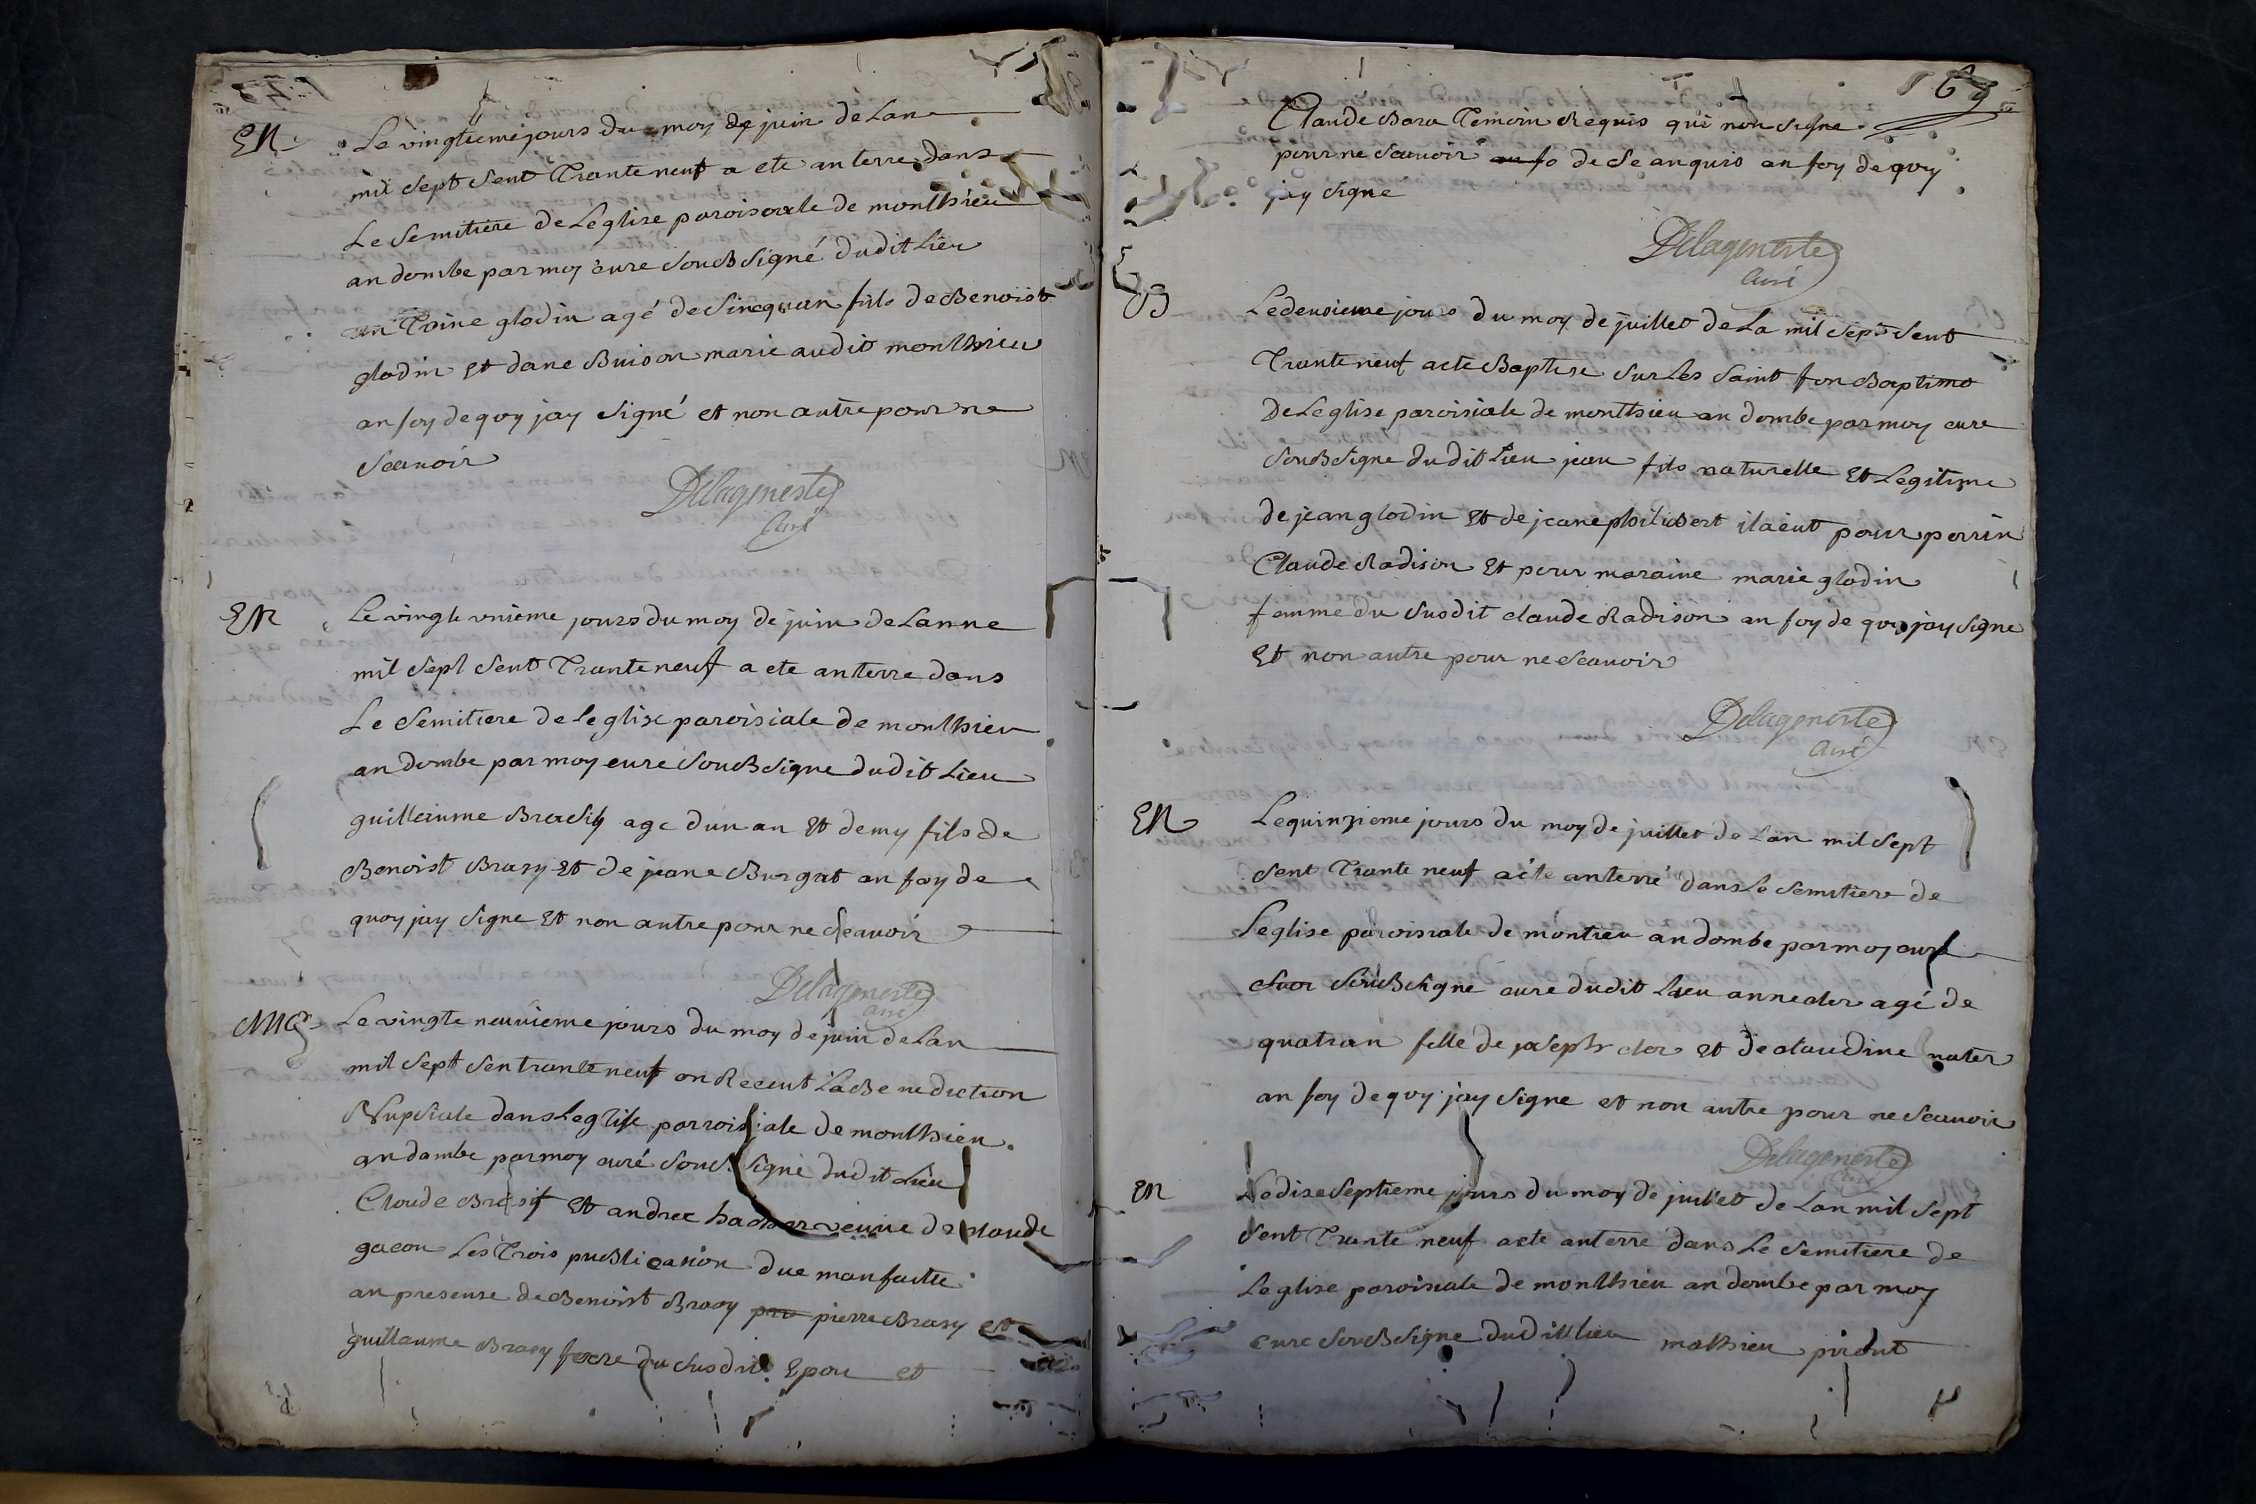 EN Le vingtieme jours du moy de juin de Lan
mil sept sent Trante neuf a ete anterre dans
Le semitiere de Leglise paroisiale de monthieu
an dombe par moy cure soubsigné dudit Lieu
antoine glodin agé de sincquan fils de Benoist
glodin et dane Buison marie audit monthieu
an foy de quoy jay signé et non autre pour ne
scauoir
Delageneste
curé
EN Le vingte vnieme jours du moy de juin de Lanne
mil sept sent Trante neuf a ete anterre dans
Le semitiere de leglise paroisiale de monthieu
an dombe par moy cure soubsigne dudit Lieu
guilleaume age dun an et demy fils de
Benoist Brasy et de jeane Burgat an foy de
quoy jay signe et non autre pour ne scauoir
Delageneste
curé
Le vingte neuuieme jours du moy de juin de Lan
mil sept sen trante neuf on Receut La Benediction
Nupsiale dans Leglise parroisiale de monthieu
an dombe par moy curé soubsigné dudit Lieu
Claude et andree veuue de claude
gacon Les Trois publication due manfaitte
an presense de Benoist Brasy pierre Brasy et
guillaume Brasy frere du susdit Epou et
169
Claude Bara Temoin Requis qui non signe
pour ne scauoir de se anquis an foy de quoy
jay signe
Delageneste
curé
B Le deusieme jours du moy de juillet de La mil sept sent
Trante neuf a ete Baptise sur Les saint fon Baptimo
De Leglise paroisiale de monthieu an dombe par moy cure
soubsigne dudit Lieu jean fils naturelle et Legitime
de jean glodin et de jeane philibert il a eut pour perrin
Claude Radison et pour maraine marie glodin
femme du susdit claude Radison an foy de quoy jay signe
Et non autre pour ne scauoir
Delageneste
curé
EN Le quinzieme jours du moy de juillet de Lan mil sept
sent Trante neuf a ete anterré dans Le semitiere de
Leglise paroisiale de montieu an dombe par moy cure
soubsigne cure dudit Lieu anne clor agé de
quatran fille de joseph clor et de claudine
an foy de quoy jay signe et non autre pour ne scauoir
Delageneste
curé
EN Le dise septieme jours du moy de juillet de Lan mil sept
sent Trante neuf a ete anterré dans Le semitiere de
Leglise paroisiale de monthieu an dombe par moy
cure soubsigne dudit lieu mathieu